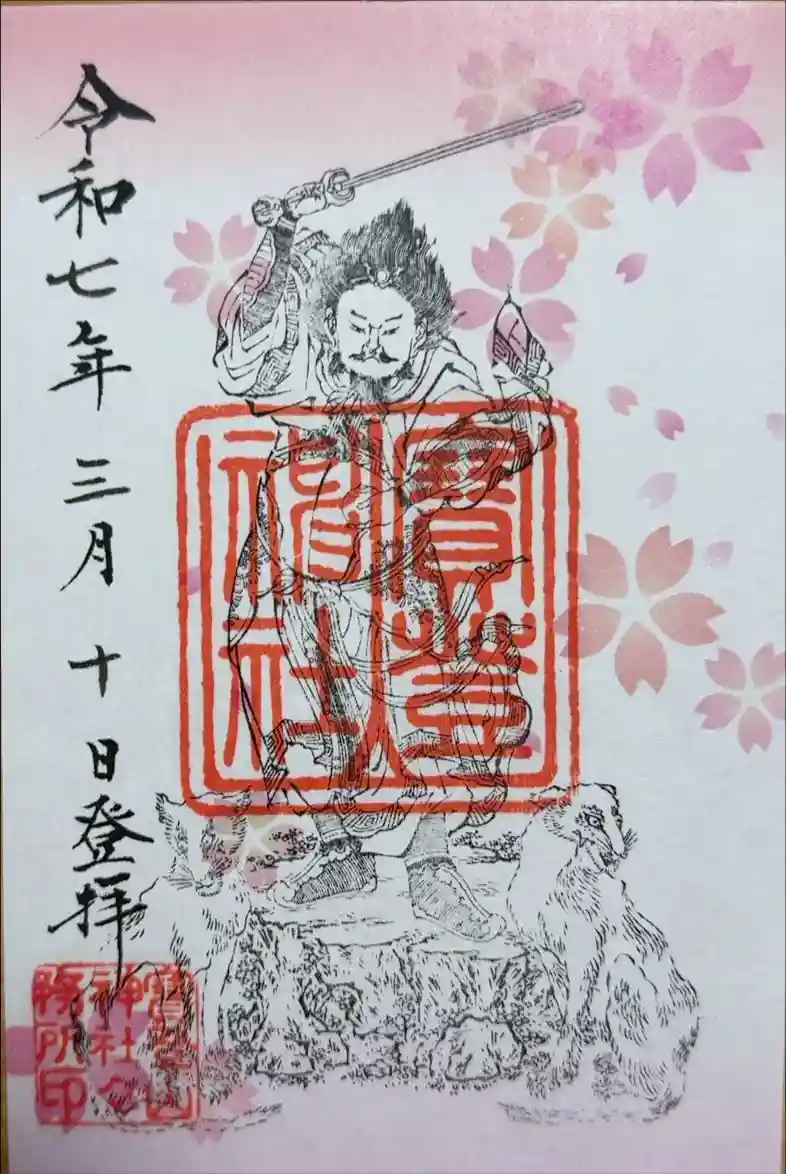 寳登
神社
令和七年三月十日登拝
寳登山
神社々
務所印